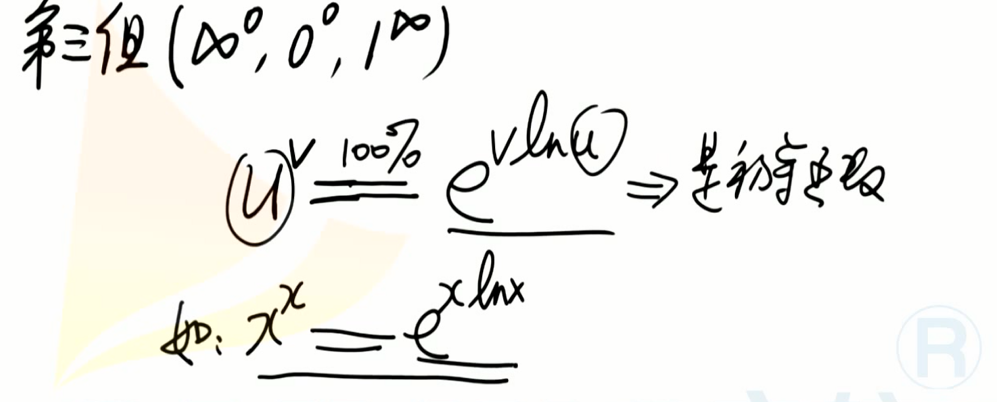 第三组(∞⁰, 0⁰, 1^∞)
u^v 100% = e^{v ln u} ⇒ 是初等函数
如: x^x = e^{x ln x}
®